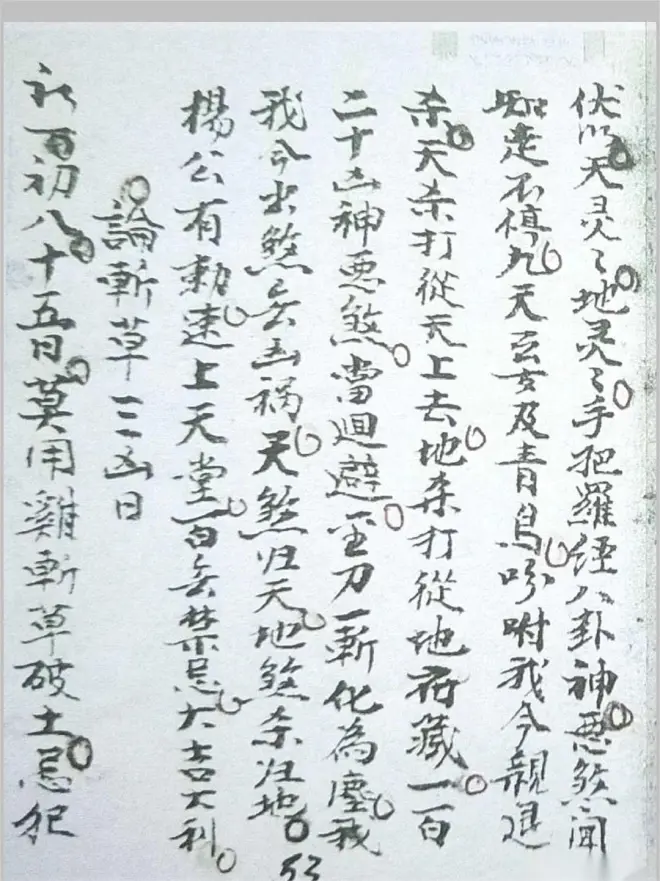 伏以天灵〻地灵〻手把羅经八卦神悪煞闻
走不停九天玄女及青鳥吩咐我今親退
杀天杀打從天上去地杀打從地府藏一百
二十凶神悪煞當迴避金刀一斬化為塵我
我今出煞去凶禍天煞归天地煞杀归地
楊公有勅速上天堂百無禁忌大吉大利
論斬草三凶日
初八十五日莫用雞斬草破土忌犯
53